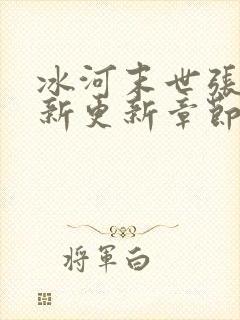 冰河末世張
新更新章節
將軍白